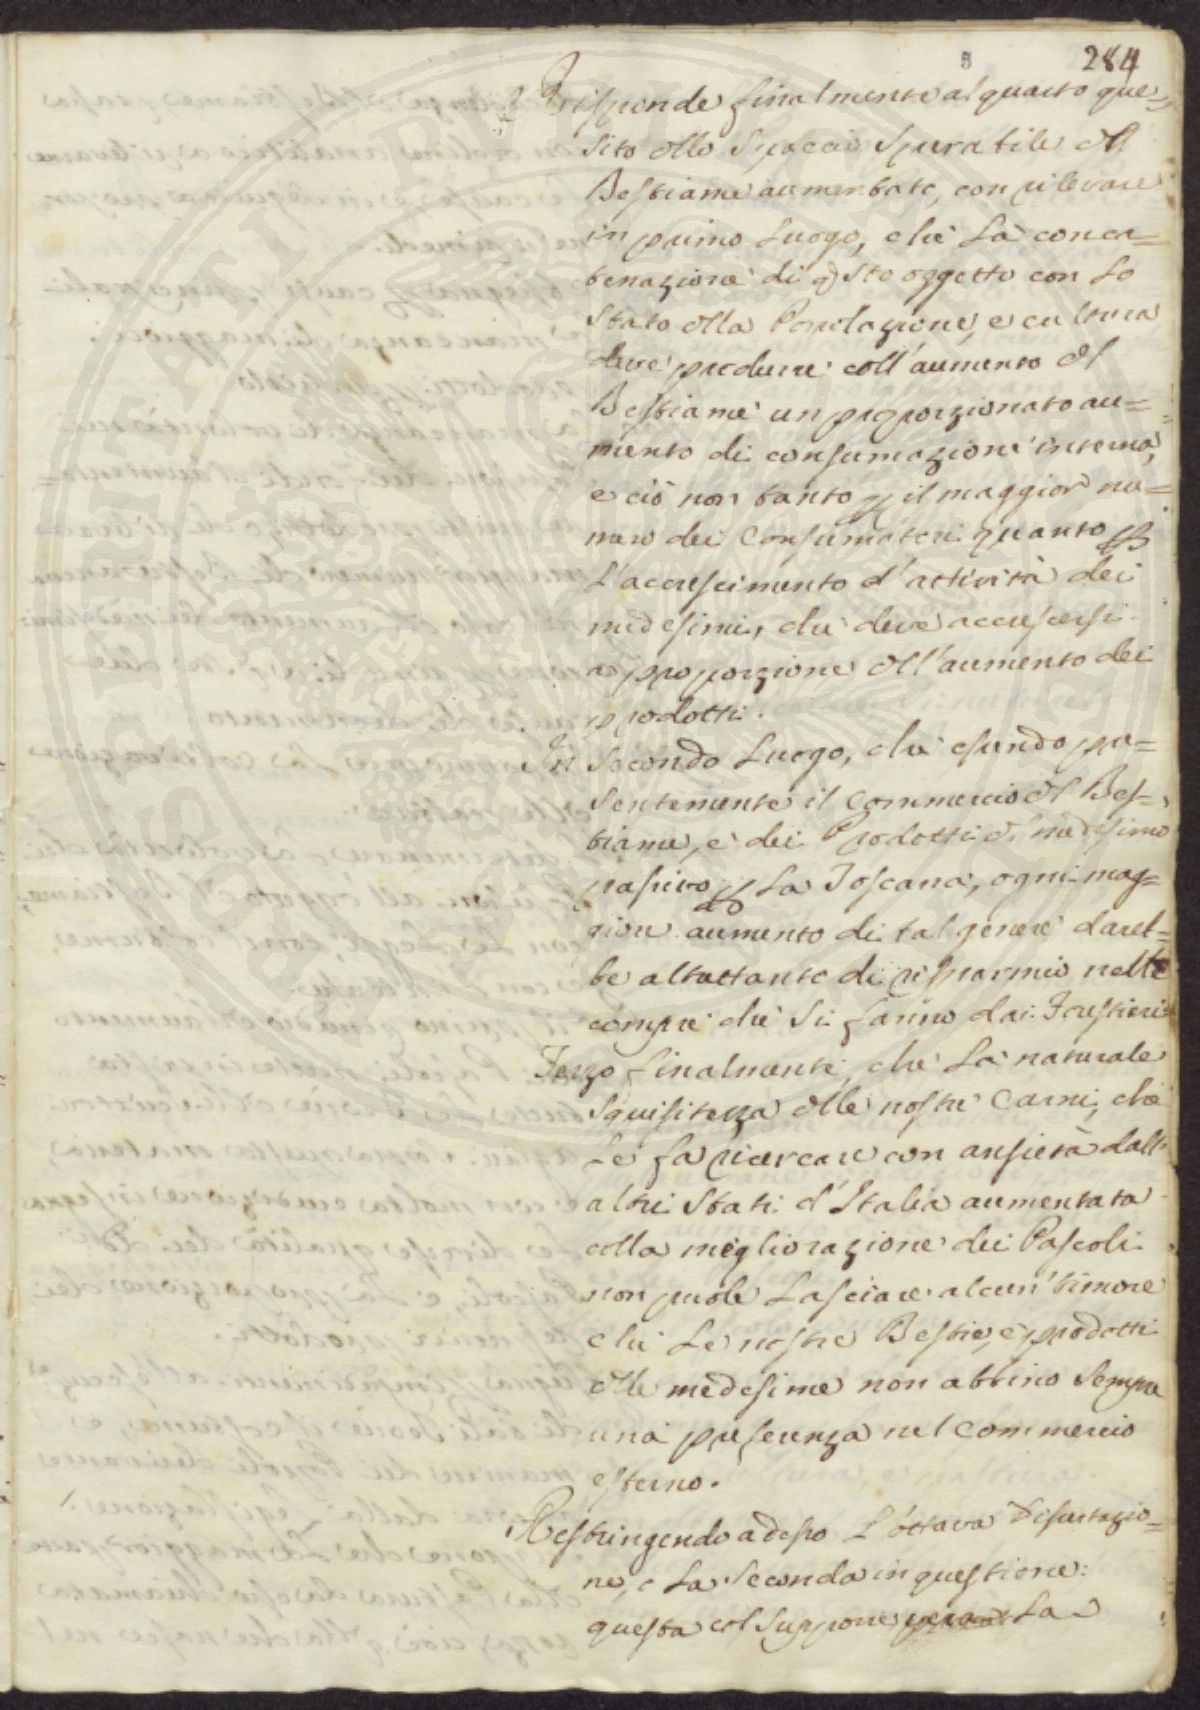 284
Risponde finalmente al quarto que=
sito dello Spaccio Sperabile del
Bestiame aumentato, con rilevare
in primo Luogo, che La conca=
tenazione di q.sto oggetto con Lo
Stato della Popolazione, e cultura
deve produrre coll'aumento del
Bestiame un proporzionato au=
mento di consumazione interna,
e ciò non tanto p il maggior nu=
mero dei Consumatori quanto p
L'accrescimento d'attività dei
medesimi, che deve accrescersi
a proporzione dell'aumento dei
prodotti.
In Secondo Luogo, che essendo pre=
sentemente il Commercio del Bes=
tiame, e dei Prodotti del medesimo
passivo p La Toscana, ogni mag=
giore aumento di tal genere dareb=
be altrettanto di risparmio nelle
compre che si fanno dai Forestieri
Terzo finalmente, che La naturale
Squisitezza delle nostre Carni, che
Le fa ricercare con ansietà dall
altri Stati d'Italia aumentata
colla migliorazione dei Pascoli
non puole Lasciare alcun timore
che Le nostre Bestie, e prodotti
delle medesime non abbino Sempre
una preferenza nel Commercio
esterno.
Restringendo adesso L'ottava Dissertazio=
ne, e La Seconda in questione:
questa col Supporre La